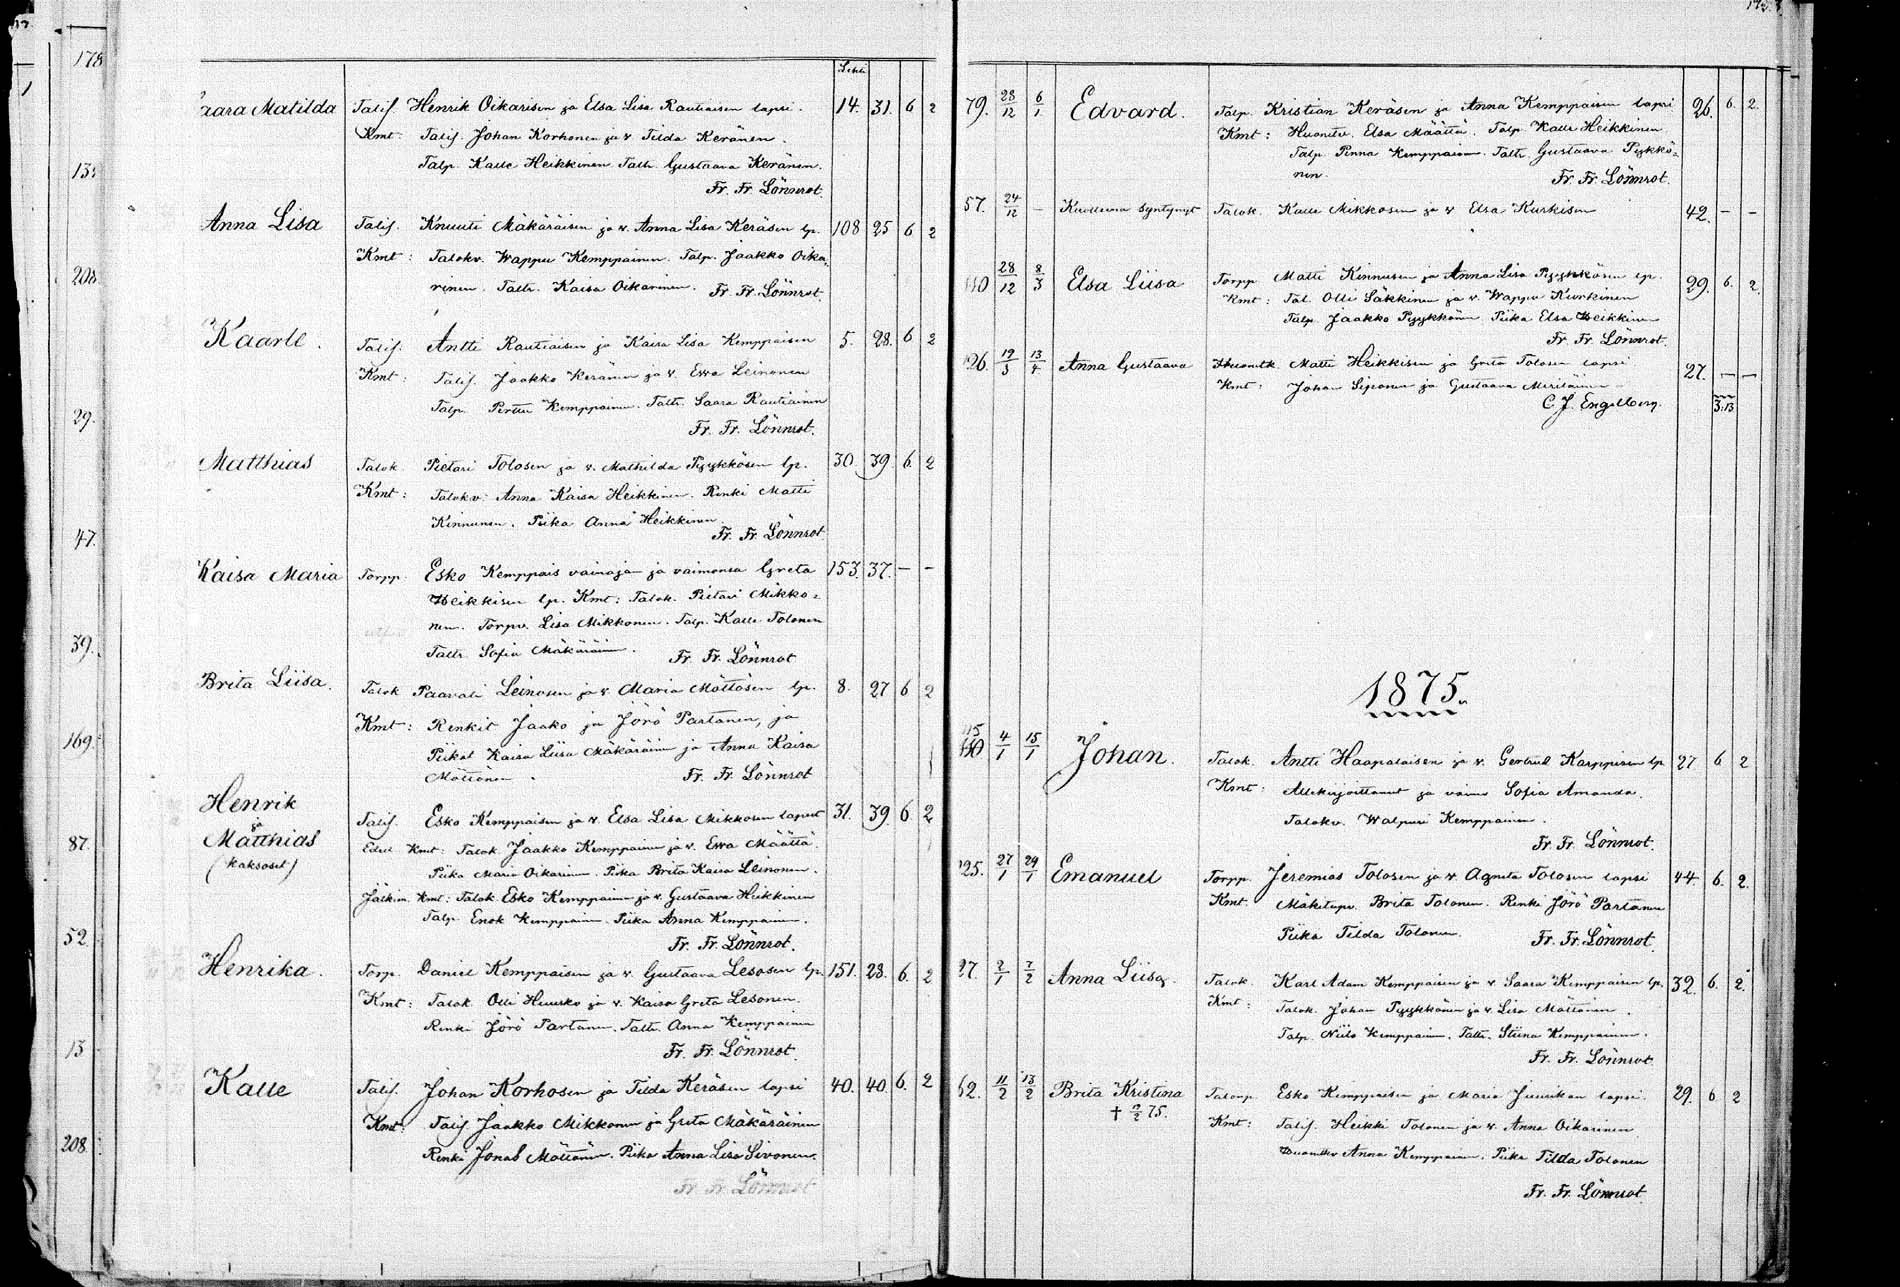 178
Lehti
Saara Matilda Talij. Henrik Oikarisen ja Elsa Lisa Rautiaisen lapsi. 14. 31. 6 2
Kmt: Talij. Johan Korhonen ja v. Tilda Keränen.
Talp. Kalle Heikkinen Taltr. Gustaava Keränen.
Fr. Fr. Lönnrot.
Anna Lisa Talij. Knuuti Mäkäräisen ja v. Anna Lisa Keräsen lp. 108 25 6 2
Kmt: Talokv. Wappu Kemppainen. Talp. Jaakko Oika-
rinen. Taltr. Kaisa Oikarinen. Fr. Fr. Lönnrot.
208.
Kaarle. Talij. Antti Rautiaisen ja Kaisa Lisa Kemppaisen 5. 28. 6 2
Kmt: Talij. Jaakko Keränen ja v. Ewa Leinonen
Talp. Perttu Kemppainen. Taltr. Saara Rautiainen
Fr. Fr. Lönnrot.
29.
Matthias Talok. Pietari Tolosen ja v. Mathilda Pyykkösen lp. 30. 39. 6. 2
Kmt: Talokv. Anna Kaisa Heikkinen. Renki Matti
Kinnunen. Piika Anna Heikkinen
Fr. Fr. Lönnrot.
47.
Kaisa Maria Torpp. Esko Kemppais vainajan ja vaimonsa Greta 153. 37. – –
Heikkisen lp. Kmt: Talok. Pietari Mikko-
nen. Torpv. Lisa Mikkonen. Talp. Kalle Tolonen
Taltr. Sofia Mäkäräinen. Fr. Fr. Lönnrot
39.
Brita Liisa. Talok Paavali Leinosen ja v. Maria Möttösen lp. 8. 27 6 2
Kmt: Renkit Jaako ja Jörö Partanen, ja
Piikat Kaisa Liisa Mäkäräinen ja Anna Kaisa
Möttönen. Fr. Fr. Lönnrot
169.
Henrik
ja
Matthias
(kaksoset)
Talij. Esko Kemppaisen ja v. Elsa Lisa Mikkosen lapset 31. 39. 6. 2
Edel. Kmt: Talok. Jaakko Kemppainen ja v. Ewa Määttä.
Piika Maria Oikarinen. Piika Brita Kaisa Leinonen.
Jälkim. Kmt: Talok. Esko Kemppainen ja v. Gustaava Heikkinen
Talp. Enok Kemppainen. Piika Anna Kemppainen.
Fr. Fr. Lönnrot.
87.
52.
Henrika. Torp. Daniel Kemppaisen ja v. Gustaava Lesosen lp. 151. 23. 6. 2
Kmt: Talok. Olli Huusko ja v. Kaisa Greta Lesonen.
Renki Jörö Partanen. Taltr. Anna Kemppainen
Fr. Fr. Lönnrot.
13
Kalle Talij. Johan Korhosen ja Tilda Keräsen lapsi 40. 40. 6. 2
Kmt: Talij Jaakko Mikkonen ja Greta Mäkäräinen
Renki Jonas Möttönen. Piika Anna Lisa Sivonen.
Fr. Fr. Lönnrot
208.
79. 28/12 6/1 Edvard. Talp. Kristian Keräsen ja Anna Kemppaisen lapsi 26. 6. 2.
Kmt: Huonitv. Elsa Määttä. Talp. Kalle Heikkinen
Talp. Pinna Kemppainen. Taltr. Gustaava Pyykkö-
nen. Fr. Fr. Lönnrot.
57. 24/12 – Kuolleena syntynyt Talok. Kalle Mikkosen ja v Elsa Kurkisen 42. – –
28/12 8/3 Elsa Liisa Torpp Matti Kinnusen ja Anna Lisa Pyykkösen lp. 29. 6. 2.
Kmt: Tal. Olli Säkkinen ja v. Wappu Kurkinen
Talp. Jaakko Pyykkönen Piika Elsa Heikkinen
Fr. Fr. Lönnrot.
19/3 13/4 Anna Gustaava Huonitk. Matti Heikkisen ja Greta Tolosen lapsi 27. – –
Kmt: Johan Siponen ja Gustaava Meriläinen
C. J. Engelberg. 3:13
1875.
4/1 15/1 Johan. Talok. Antti Haapalaisen ja v. Gertrud Karppisen lp 27 6 2
Kmt: Allekirjoittanut ja vaimo Sofia Amanda.
Talokv. Walpuri Kemppainen.
Fr. Fr. Lönnrot.
27/1 29/1 Emanuel Torpp. Jeremias Tolosen ja v. Agneta Tolosen lapsi 44. 6. 2.
Kmt. Mäkitupv. Brita Tolonen. Renki Jörö Partanen
Piika Tilda Tolonen. Fr. Fr. Lönnrot.
27. 2/1 7/2 Anna Liisa. Talok. Karl Adam Kemppaisen ja v Saara Kemppaisen lp. 32. 6. 2.
Kmt: Talok. Johan Pyykkönen ja v. Lisa Möttönen.
Talp. Niilo Kemppainen. Taltr. Stiina Kemppainen.
Fr. Fr. Lönnrot.
62. 11/2 13/2 Brita Kristina Talonp. Esko Kemppaisen ja Maria Juurikan lapsi. 29. 6 2
† 75.
Kmt: Talij. Heikki Tolonen ja v. Anna Oikarinen
Anna Kemppainen. Piika Tilda Tolonen
Fr. Fr. Lönnrot.